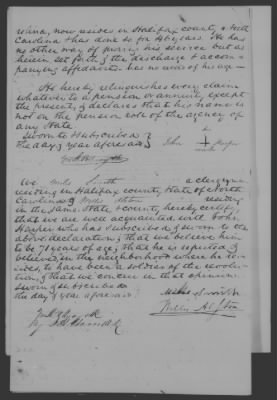 lina, now resides in Halifax county & North
Carolina & has done so for 46 years. He has
no other way of proving his service but as
herein set forth & the discharge & accom-
panying affidavits. has no record of his age—
He hereby relinquishes every claim
whatever to a pension or annuity except
the present, & declares that his name is
not on the pension role of the agency of
any State.
Sworn to & subscribed
the day & year aforesaid
his
John + Harper
mark
We Smith a clergyman
residing in Halifax county State of North
Carolina & Willis Alston residing
in the same State & county, hereby certify
that we are well acquainted with John
Harper who has subscribed & sworn to the
above declaration; that we believe him
to be 71 years of age; that he is reputed &
believed in the neighborhood where he re-
sides, to have been a soldier of the revolu-
tion, & that we concur in that opinion.
Sworn & subscribed
the day & year aforesaid
Smith
Willis Alston